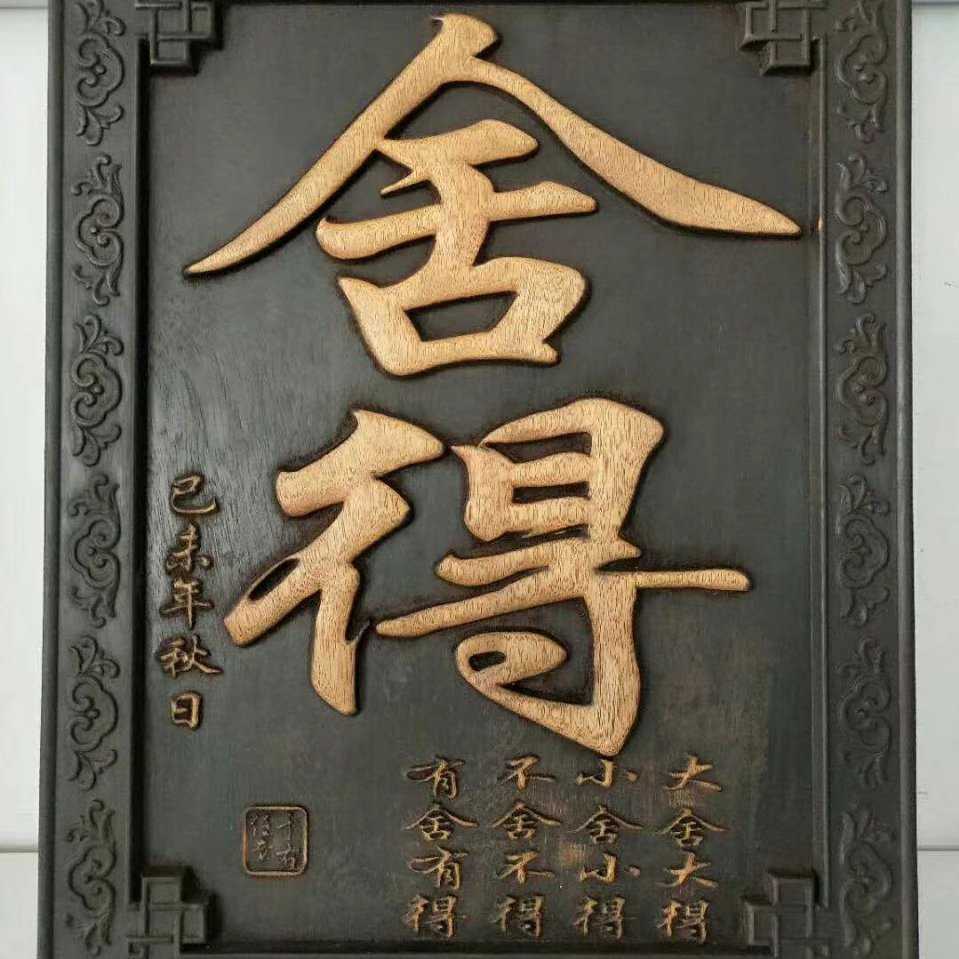 舍得
大舍大得
小舍小得
不舍不得
有舍有得
己未年秋日